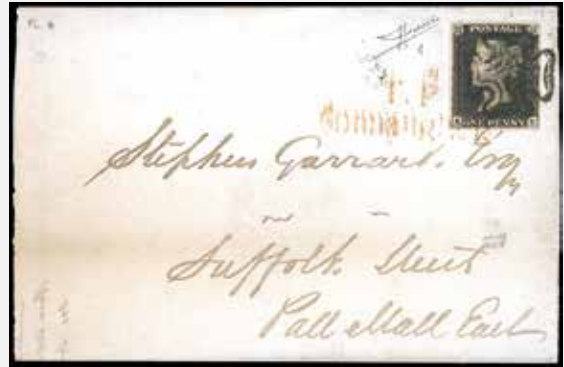 POSTAGE
ONE PENNY
T.P
Stephen Garrard. Esq
Suffolk Street
Pall Mall East